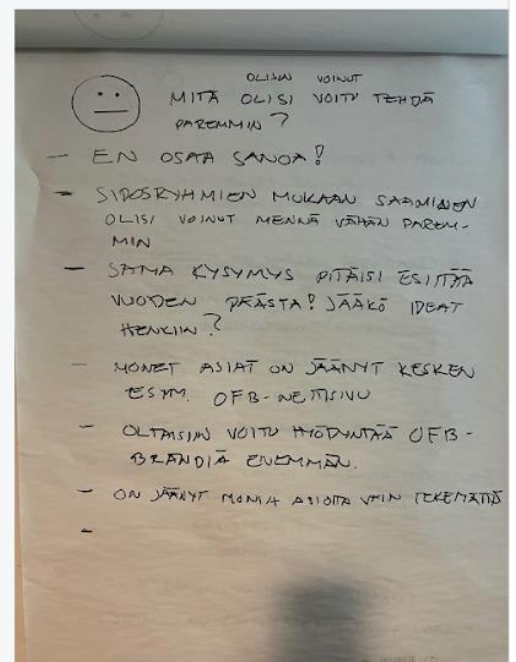 OLISIN VOINUT
MITÄ OLISI VOITU TEHDÄ
PAREMMIN?
- EN OSAA SANOA!
- SIDOSRYHMIEN MUKAAN SAAMINEN
OLISI VOINUT MENNÄ VÄHÄN PAREM-
MIN
- SAMA KYSYMYS PITÄISI ESITTÄÄ
VUODEN PÄÄSTA! JÄÄKÖ IDEAT
HENKIIN?
- MONET ASIAT ON JÄÄNYT KESKEN
ESIM. OFB-NETTISIVU
- OLTAISIIN VOITU HYÖDYNTÄÄ OFB-
BRÄNDIÄ ENEMMÄN.
- ON JÄÄNYT MONIA ASIOITA VAIN TEKEMÄTTÄ
-